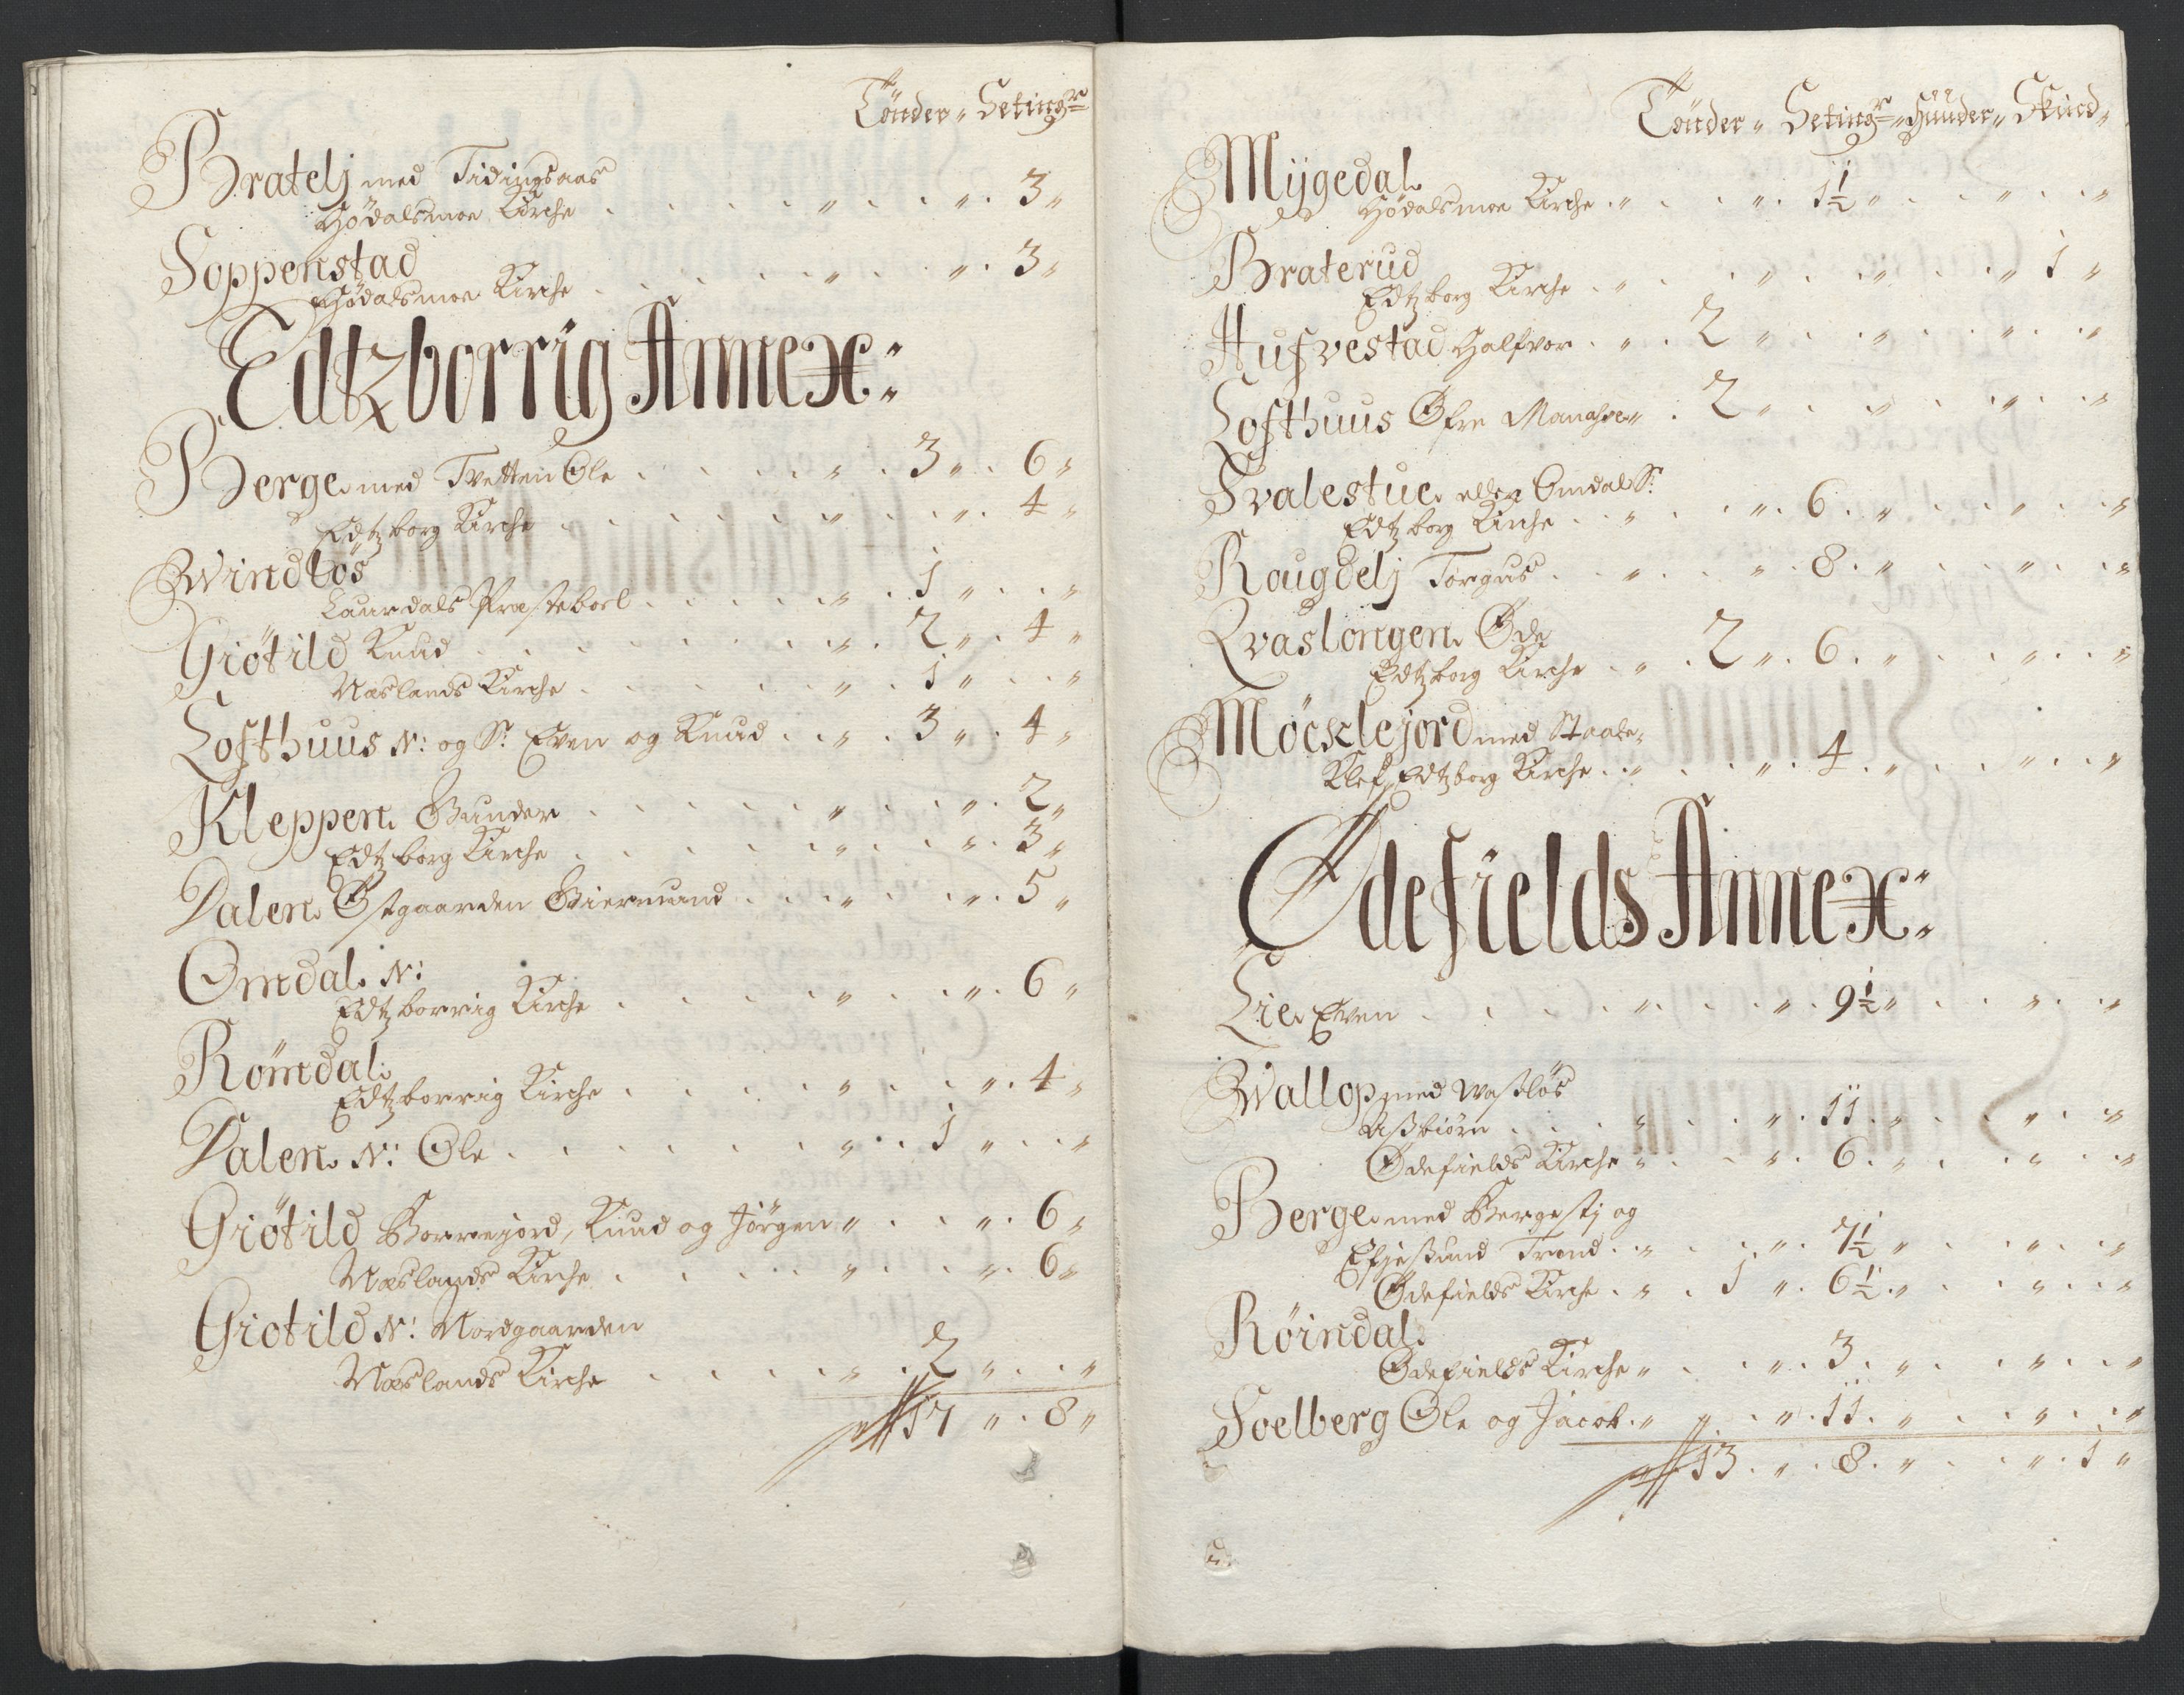 Tönder " Seting:r
Bratelj med Tidingsaas
Hödalsmoe Kirche . . . . " . . " . 3 "
Soppenstad
Hödalsmoe Kirche . . . . " . . " . 3 "
Edtzborrig Annex:
Berge med Tvetten Ole . . . . " . 3 " . 6 "
Edtzborg Kirche . . . . " . . " . 4 "
Windlös
Laurdals Præstebord . . . . " . 1 " . . "
Giötild Knud . . . . " . 2 " . 4 "
Næslands Kirche . . . . " . 1 " . . "
Lofthuus N: og S: Even og Knud . . " . 3 " . 4 "
Kleppen Gunder . . . . " . . " . 2 "
Edtzborg Kirche . . . . " . . " . 3 "
Dalen Østgaarden Giermund . . . " . . " . 5 "
Omdal N:
Edtzborrig Kirche . . . . " . . " . 6 "
Römdal
Edtzborrig Kirche . . . . " . . " . 4 "
Dalen N: Ole . . . . " . . 1 " . . "
Giötild Borrejord, Knud og Jörgen " . . " . 6 "
Næslands Kirche . . . . " . . " . 6 "
Giötild N: Nordgaarden
Næslands Kirche . . . . " . 2 " . . "
17 " . 8 "
Tönder " Seting:r " Huuder " Skind "
Mÿgedal
Hödalsmoe Kirche . " . . " . 1½ " . . " . . "
Braterud
Edtzborg Kirche . " . . " . . " . . " 1 "
Hufvestad Halfvor . " . 2 " . . " . . " . . "
Lofthuus Øfre " . 2 " . . " . . " . . "
Svalestue eller Omdal S:
Edtzborg Kirche . . " . . " . 6 . " . . " . . "
Raugdelj Torgus . . " . . " . 8 . " . . " . . "
Qvaslongen Øde
Edtzborg Kirche . " . 2 " . 6 . " . . " . . "
Möcklejord med Staale
Klef, Edtzborg Kirche . " . . " . 4 . " . . " . . "
Ødefields Annex:
Lie Even . . . . " . . " . 9½ " . . " . . "
Wallop med Waslös
Assbiörn . . . " . . " . 11 . " . . " . . "
Ødefields Kirche " . . " . 6 . " . . " . . "
Berge med Bergestj og
Trond . " . . " . 7½ " . . " . . "
Ødefields Kirche . " . 1 " . 6½ " . . " . . "
Röindal
Ødefields Kirche " . . " . 3 . " . . " . . "
Soelberg Ole og Jacob . " . . " . 11 . " . . " . . "
13 . " . 8 . " . . " . 1 "